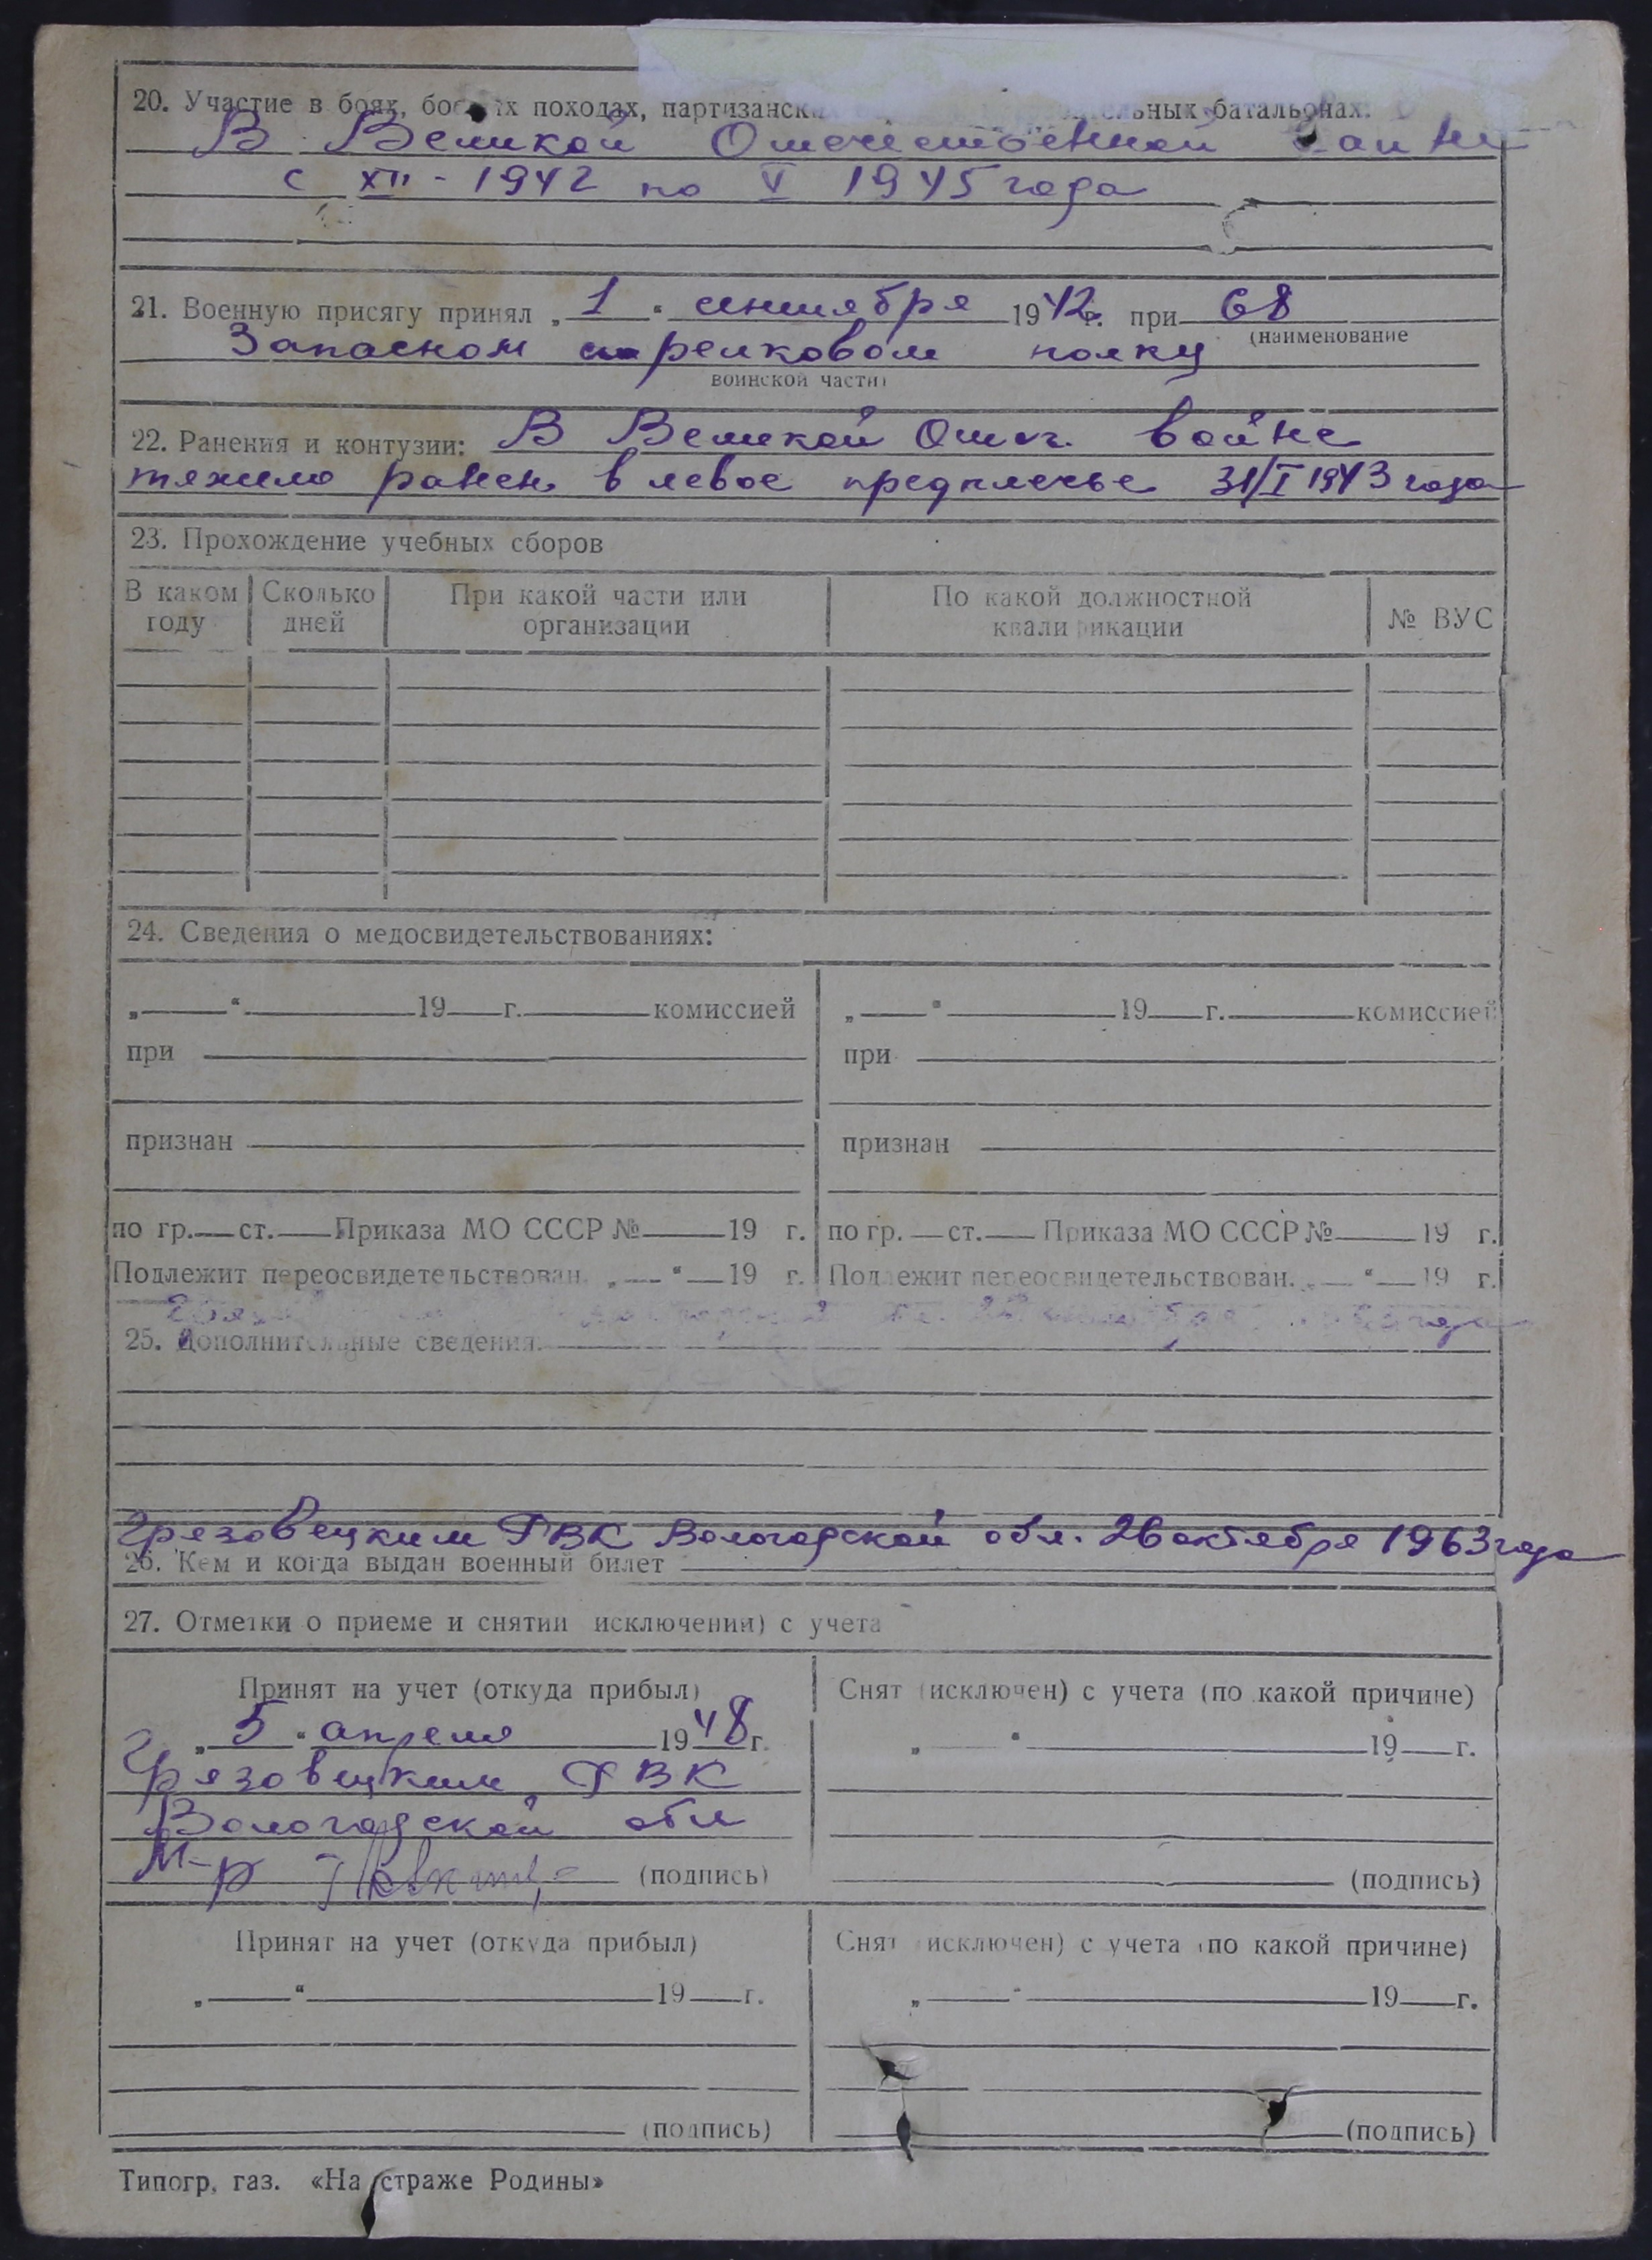 20. Участие в боях, боевых походах, партизанск батальонах.
В Великой Отечественной войне
с XII - 1942 по V 1945 года
21. Военную присягу принял „1“ сентября 1942г. при 68
(наименование
Запасном стрелковом полку
воинской части)
22. Ранения и контузии: В Великой Отеч. войне
тяжело ранен в левое предплечье 31/I 1943 года
23. Прохождение учебных сборов
В каком году Сколько дней При какой части или организации По какой должностной квалификации № ВУС
24. Сведения о медосвидетельствованиях:
„ “ 19 г. комиссией „ “ 19 г. комиссией
при при
признан признан
по гр. ст. Приказа МО СССР № 19 г. по гр. ст. Приказа МО СССР № 19 г.
Подлежит переосвидетельствован. „ “ 19 г. Подлежит переосвидетельствован. „ “ 19 г.
25. Дополнительные сведения.
Грязовецким РВК Вологодской обл. 26 октября 1963 года
26. Кем и когда выдан военный билет
27. Отметки о приеме и снятии исключении) с учета
Принят на учет (откуда прибыл) Снят (исключен) с учета (по какой причине)
„5“ апреля 1948г. „ “ 19 г.
Грязовецким РВК
Вологодской обл
М-р (подпись) (подпись)
Принят на учет (откуда прибыл) Снят исключен) с учета (по какой причине)
„ “ 19 г. „ “ 19 г.
(подпись) (подпись)
Типогр. газ. «На страже Родины»